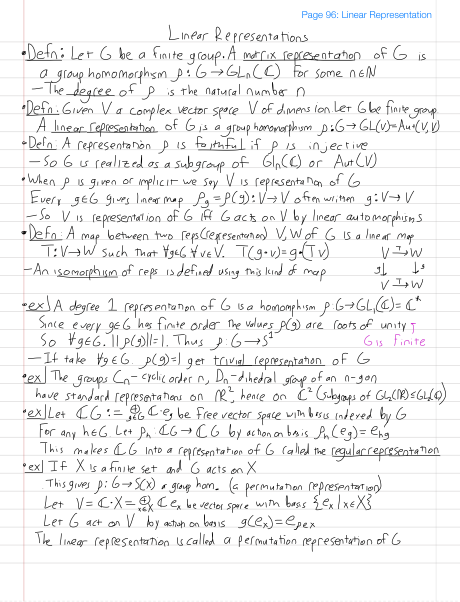 Page 96: Linear Representation
Linear Representations
• Defn: Let G be a finite group. A matrix representation of G is
a group homomorphism ρ: G → GLₙ(ℂ) for some n∈ℕ
– The degree of ρ is the natural number n
• Defn: Given V a complex vector space V of dimension. Let G be finite group
A linear representation of G is a group homomorphism ρ: G → GL(V) = Aut(V,V)
• Defn: A representation ρ is faithful if ρ is injective
– So G is realized as a subgroup of GLₙ(ℂ) or Aut(V)
• When ρ is given or implicit we say V is representation of G
Every g∈G gives linear map ρ_g = ρ(g): V → V often written g: V → V
– So V is representation of G iff G acts on V by linear automorphisms
• Defn: A map between two reps (representation) V, W of G is a linear map
T: V → W such that ∀g∈G ∀v∈V. T(g·v) = g·(Tv)
V T→ W
g↓ ↓g
V T→ W
– An isomorphism of reps is defined using this kind of map
• ex| A degree 1 representation of G is a homomphism ρ: G → GL₁(ℂ) = ℂ*
Since every g∈G has finite order the values ρ(g) are roots of unity ↑
So ∀g∈G. ||ρ(g)||=1. Thus ρ: G → S¹
G is finite
– If take ∀g∈G. ρ(g)=1 get trivial representation of G
• ex| The groups Cₙ – cyclic order n, Dₙ – dihedral group of an n-gon
have standard representations on ℝ², hence on ℂ² (subgroups of GL₂(ℝ) ≤ GL₂(ℂ))
• ex| Let ℂG := ⊕_{g∈G} ℂ·e_g be free vector space with basis indexed by G
For any h∈G. Let ρ_h: ℂG → ℂG by action on basis ρ_h(e_g) = e_{hg}
This makes ℂG into a representation of G called the regular representation
• ex| If X is a finite set and G acts on X
This gives ρ: G → S(X) a group hom. (a permutation representation)
Let V = ℂ·X = ⊕_{x∈X} ℂe_x be vector space with basis {e_x | x∈X}
Let G act on V by action on basis g(e_x) = e_{ρ_g x}
The linear representation is called a permutation representation of G